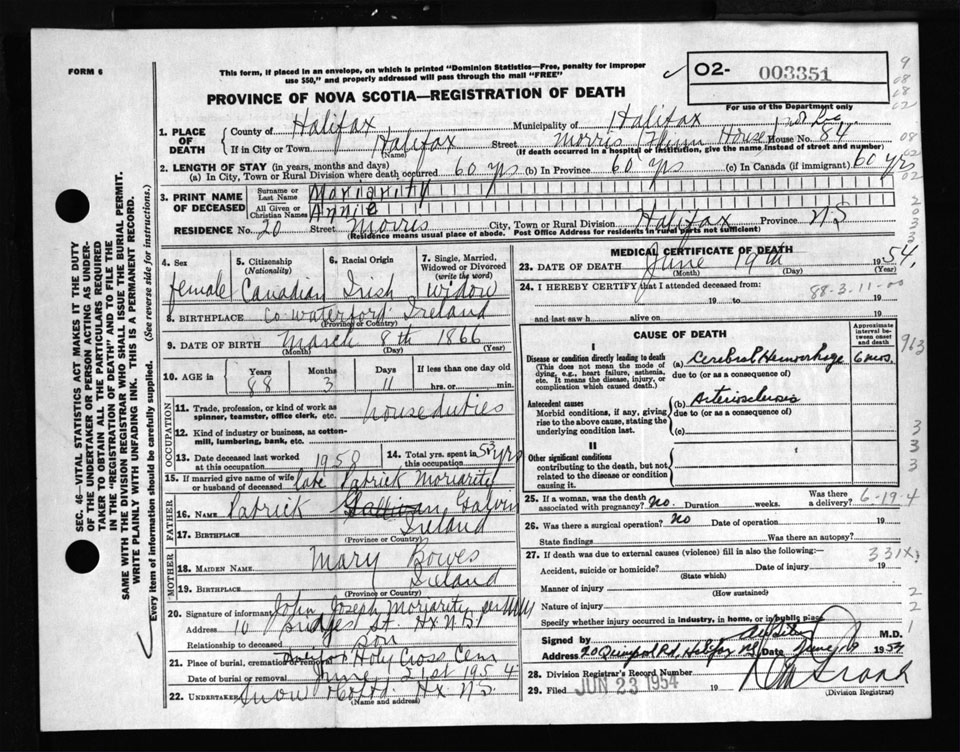 FORM 6
This form, if placed in an envelope, on which is printed "Dominion Statistics—Free, penalty for improper
use $50," and properly addressed will pass through the mail "FREE"
O2- 003351
For use of the Department only
PROVINCE OF NOVA SCOTIA—REGISTRATION OF DEATH
1. PLACE OF DEATH
County of Halifax Municipality of Halifax
If in City or Town Halifax Street Morris House No. 84
(Name) (If death occurred in a hospital or institution, give the name instead of street and number)
2. LENGTH OF STAY (in years, months and days)
(a) In City, Town or Rural Division where death occurred 60 yrs (b) In Province 60 yrs (c) In Canada (if immigrant) 60 yrs
3. PRINT NAME OF DECEASED
Surname or Last Name Moriarity
All Given or Christian Names Annie
RESIDENCE No. 20 Street Morris City, Town or Rural Division Halifax Province NS
(Residence means usual place of abode. Post Office Address for residents in rural parts not sufficient)
SEC. 46—VITAL STATISTICS ACT MAKES IT THE DUTY
OF THE UNDERTAKER OR PERSON ACTING AS UNDER-
TAKER TO OBTAIN ALL THE PARTICULARS REQUIRED
IN THE "REGISTRATION OF DEATH" AND TO FILE THE
SAME WITH THE DIVISION REGISTRAR WHO SHALL ISSUE THE BURIAL PERMIT.
WRITE PLAINLY WITH UNFADING INK. THIS IS A PERMANENT RECORD.
Every item of information should be carefully supplied. (See reverse side for instructions.)
4. Sex
female
5. Citizenship
(Nationality)
Canadian
6. Racial Origin
Irish
7. Single, Married,
Widowed or Divorced
(write the word)
Widow
8. BIRTHPLACE Co waterford Ireland
(Province or Country)
9. DATE OF BIRTH March 8th 1866
(Month) (Day) (Year)
10. AGE in
Years 88
Months 3
Days 11
If less than one day old
hrs. or min.
OCCUPATION
11. Trade, profession, or kind of work as
spinner, teamster, office clerk, etc. house duties
12. Kind of industry or business, as cotton-
mill, lumbering, bank, etc.
13. Date deceased last worked
at this occupation 1950
14. Total yrs. spent in
this occupation 53 yrs
15. If married give name of wife
or husband of deceased late Patrick Moriarity
FATHER
16. NAME Patrick Sullivan Galvin
17. BIRTHPLACE Ireland
(Province or Country)
MOTHER
18. MAIDEN NAME Mary Bowes
19. BIRTHPLACE Ireland
(Province or Country)
20. Signature of informant John Joseph Moriarity
Address 10 St. Hx NS
Relationship to deceased Son
21. Place of burial, cremation or removal Holy Cross Cem
Date of burial or removal June 21st 1954
22. UNDERTAKER Snow Co Ltd. Hx NS.
(Name and address)
MEDICAL CERTIFICATE OF DEATH
23. DATE OF DEATH June 19th 1954
(Month) (Day) (Year)
24. I HEREBY CERTIFY that I attended deceased from:
88-3-11-00
19 to 19
and last saw h alive on 19
CAUSE OF DEATH
Approximate
interval between
onset and death
I
Disease or condition directly leading to death
(This does not mean the mode of
dying, e.g., heart failure, asthenia,
etc. It means the disease, injury, or
complication which caused death.)
(a) Cerebral Hemorrhage
due to (or as a consequence of)
Antecedent causes
Morbid conditions, if any, giving
rise to the above cause, stating the
underlying condition last.
(b) Arteriosclerosis
due to (or as a consequence of)
(c)
II
Other significant conditions
contributing to the death, but not
related to the disease or condition
causing it.
25. If a woman, was the death
associated with pregnancy? No. Duration weeks. Was there
a delivery? 6-19-4
26. Was there a surgical operation? No Date of operation 19
State findings Was there an autopsy?
27. If death was due to external causes (violence) fill in also the following:
331X
Accident, suicide or homicide? Date of injury 19
(State which)
Manner of injury
(How sustained)
Nature of injury
Specify whether injury occurred in industry, in home, or in public place
Signed by M.D.
Address 20 Quinpool Rd, Halifax NS Date 19 54
28. Division Registrar's Record Number
29. Filed JUN 23 1954 19
(Division Registrar)